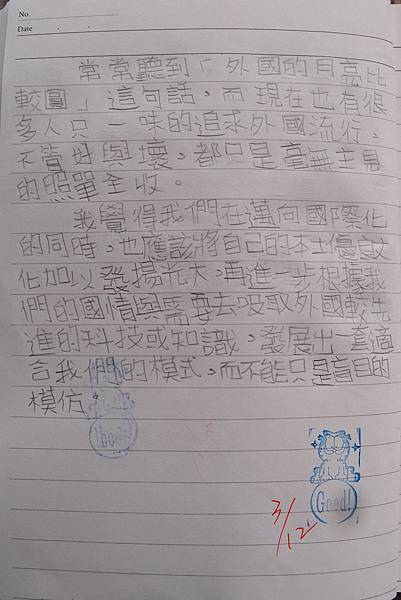 No.
Date
常常聽到「外國的月亮比
較圓」這句話，而現在也有很
多人只一味的追求外國流行，
不管好與壞，都只是毫無主見
的照單全收。
我覺得我們在邁向國際化
的同時，也應該將自己的本土優良文
化加以發揚光大，再進一步根據我
們的國情與需要去吸取外國較先
進的科技或知識，發展出一套適
合我們的模式，而不能只是盲目的
模仿。
Good!
Good!
3/12